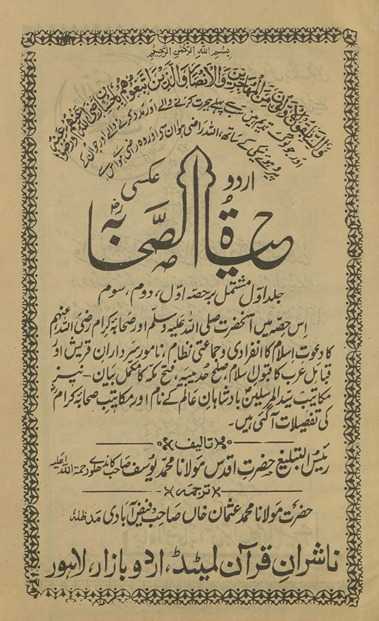 بسم اللہ الرحمن الرحیم
والسابقون الاولون من المہاجرین والانصار والذین اتبعوہم باحسان رضی اللہ عنہم ورضوا عنہ
اردو
عکسی
حیاۃ الصحابہ
جلد اوّل مشتمل بر حصہ اوّل، دوم، سوم
اِس حصہ میں آنحضرت صلی اللہ علیہ وسلم اور صحابہ کرام رضی اللہ عنہم
کا دعوت اسلام کا انفرادی و جماعتی نظام، نامور سرداران قریش اور
قبائل عرب کا قبول اسلام صلح حدیبیہ، فتح مکہ کا مکمل بیان - نیز
مکاتیب سید المرسلین بادشاہان عالم کے نام اور مکاتیب صحابہ کرام
کی تفصیلات آگئی ہیں۔
تالیف
رئیس التبلیغ حضرت اقدس مولانا محمد یوسف صاحب کاندھلوی رحمۃ اللہ علیہ
ترجمہ
حضرت مولانا محمد عثمان خاں صاحب فیض آبادی مدظلہٗ
ناشران قرآن لمیٹڈ، اردو بازار، لاہور